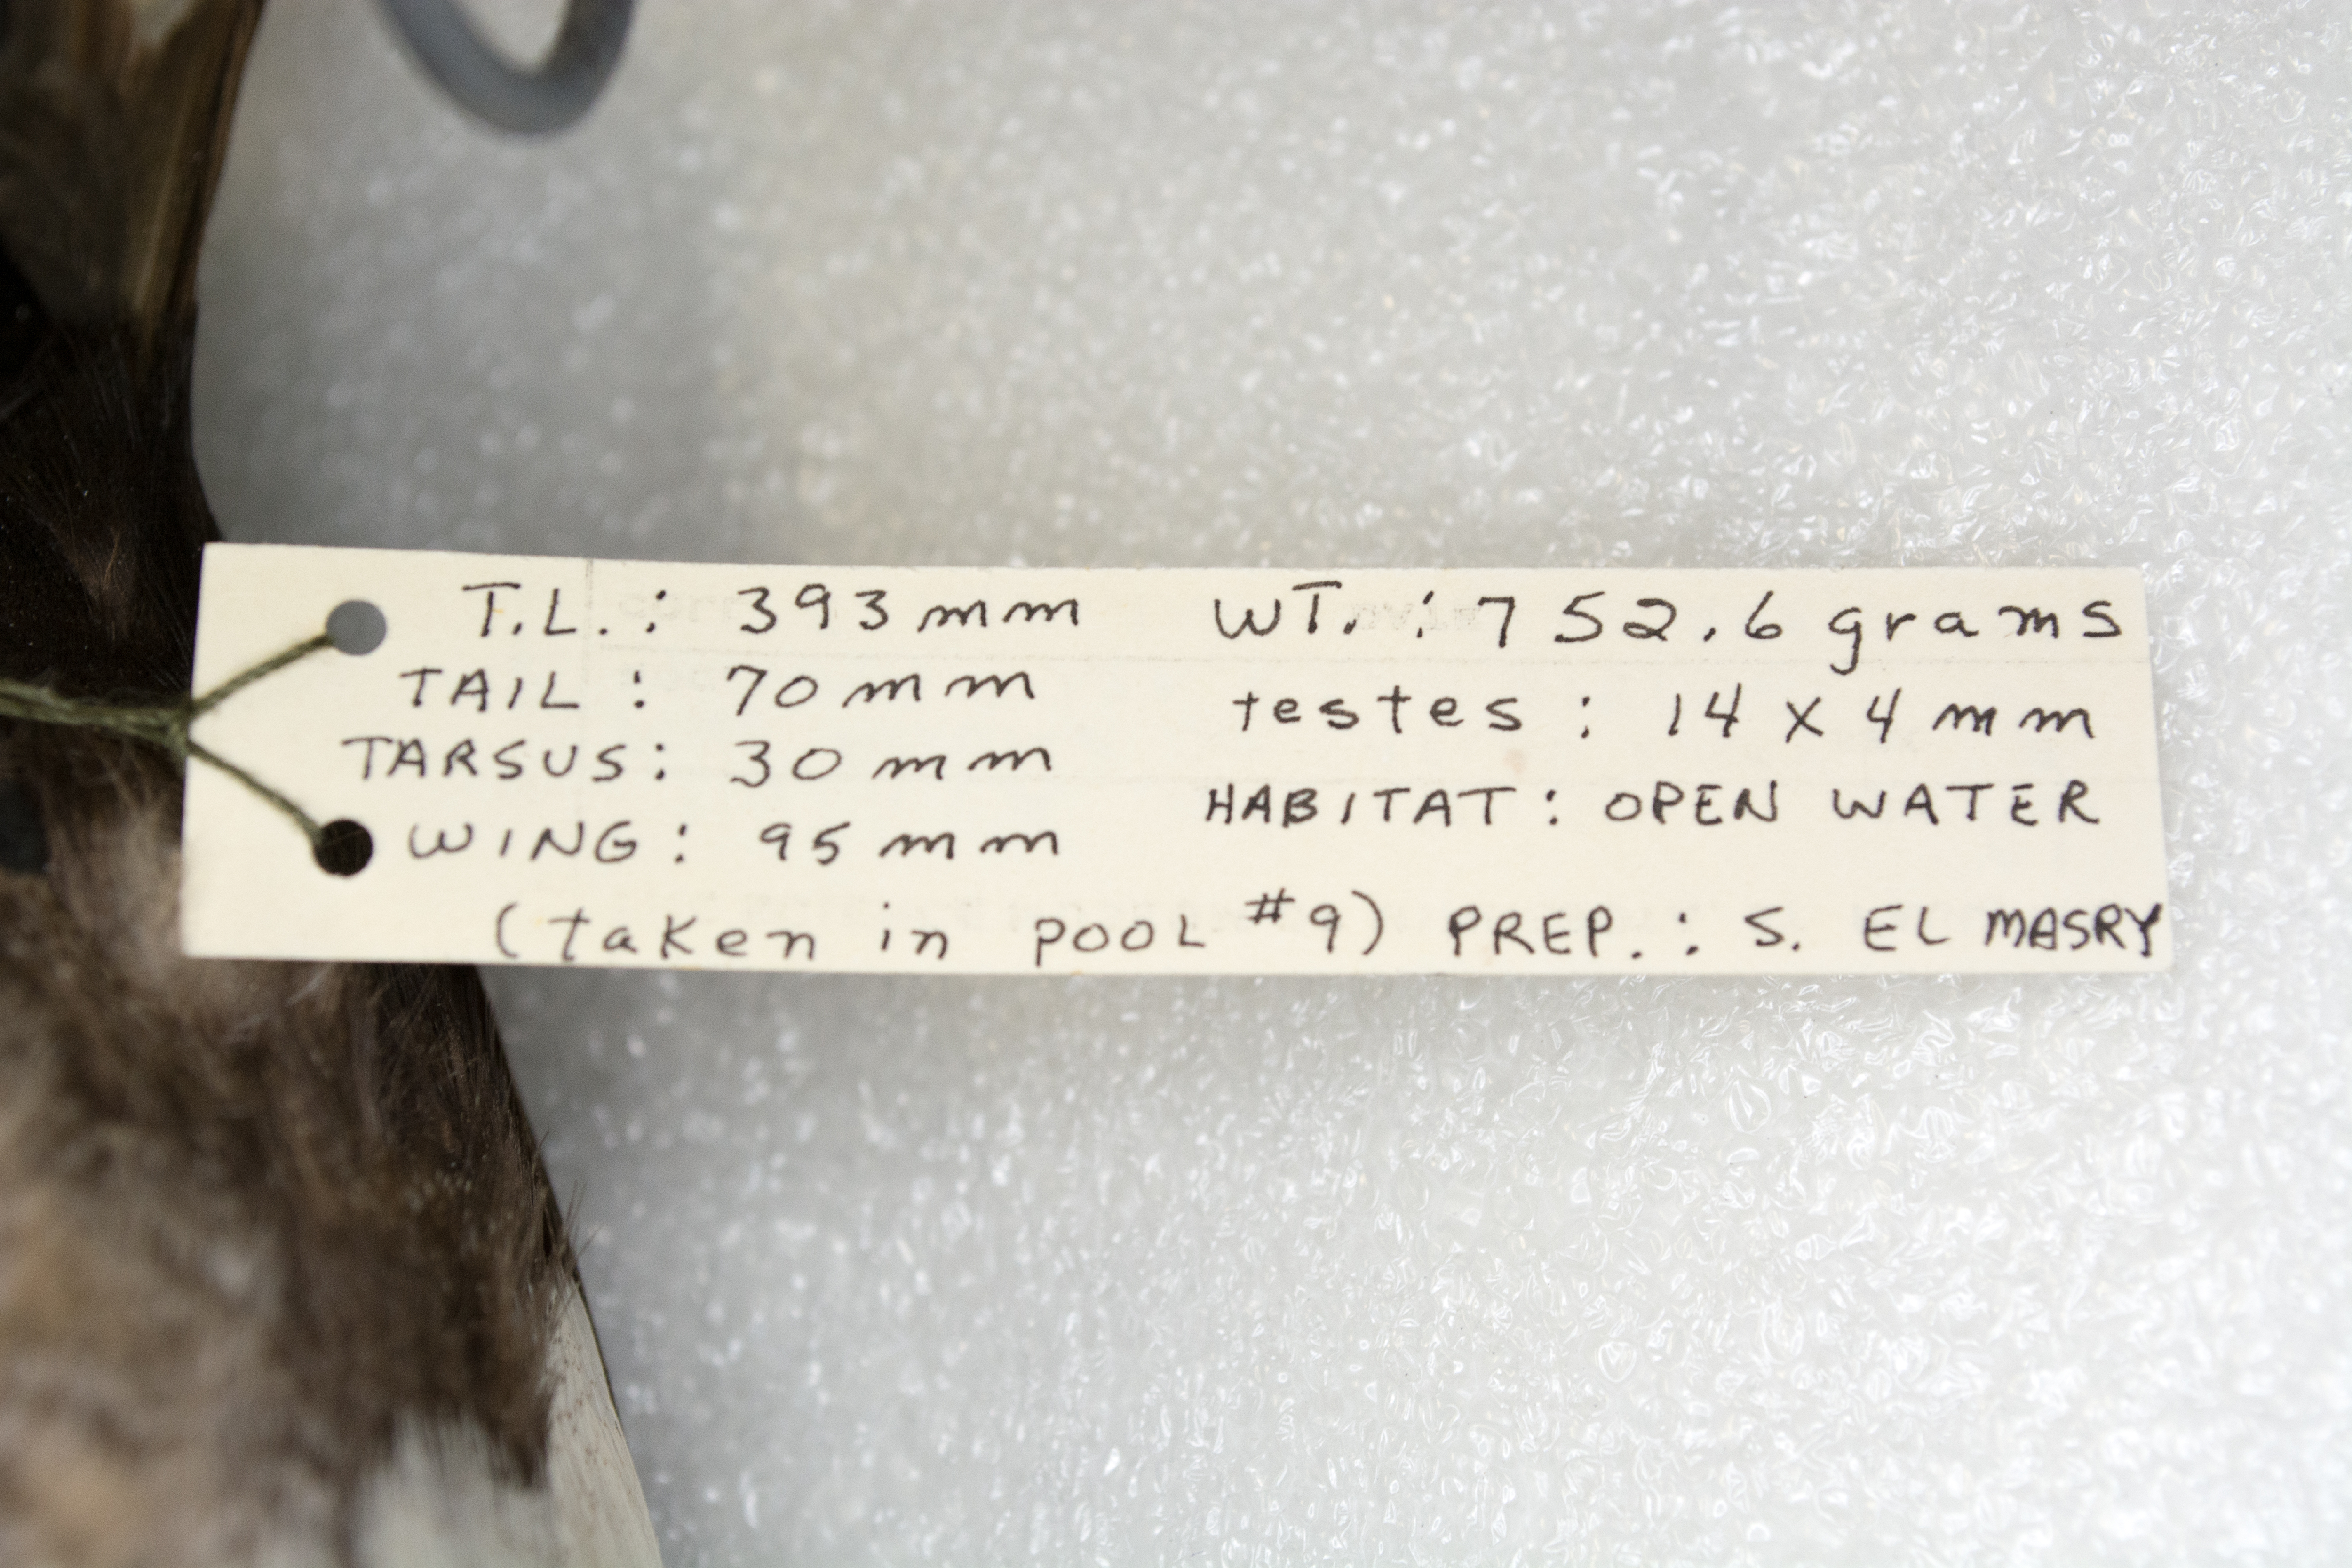 T.L.: 393 mm WT.: 752.6 grams
TAIL: 70 mm testes: 14 x 4 mm
TARSUS: 30 mm HABITAT: OPEN WATER
WING: 95 mm
(taken in POOL #9) PREP.: S. EL MASRY